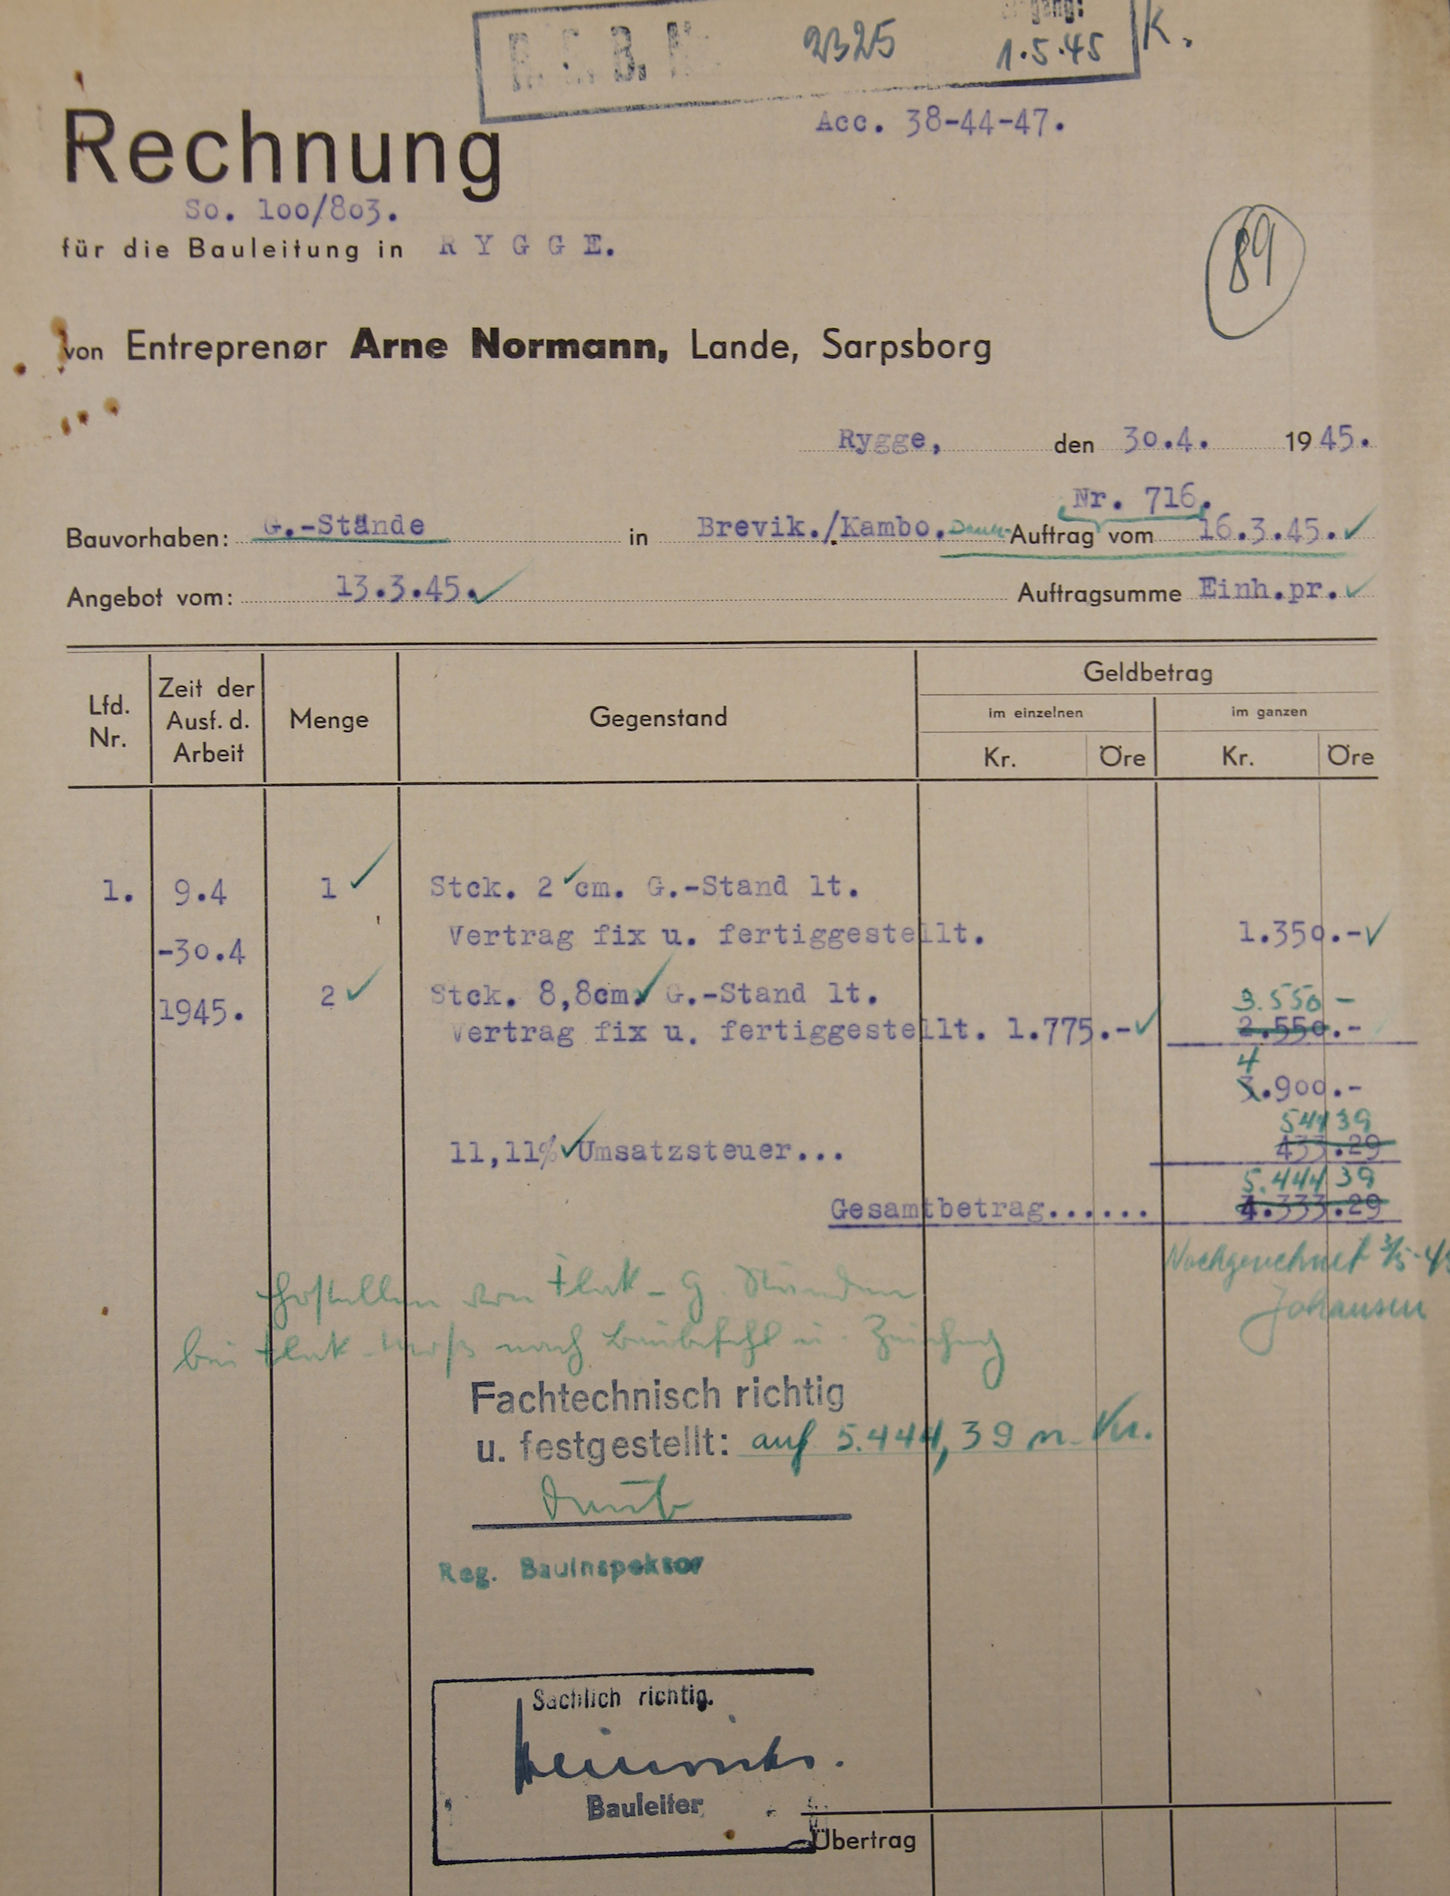 2325 1.5.45 K.
Acc. 38-44-47.
Rechnung
So. 100/803.
für die Bauleitung in RYGGE.
89
von Entreprenør Arne Normann, Lande, Sarpsborg
Rygge, den 30.4. 1945.
Nr. 716.
Bauvorhaben: G.-Stände in Brevik./Kambo. Auftrag vom 16.3.45.
Angebot vom: 13.3.45. Auftragsumme Einh.pr.
Geldbetrag
Lfd. Nr. Zeit der Ausf. d. Arbeit Menge Gegenstand im einzelnen im ganzen
Kr. Öre Kr. Öre
1. 9.4 1 Stck. 2 cm. G.-Stand lt.
-30.4 Vertrag fix u. fertiggestellt. 1.350.-
1945. 2 Stck. 8,8cm. G.-Stand lt. 3.550 -
Vertrag fix u. fertiggestellt. 1.775.- 2.550.-
4
3.900.-
544 39
11,11% Umsatzsteuer... 433.29
5.444 39
Gesamtbetrag...... 4.333.29
Nachgerechnet 3/5-45
Johansen
Fachtechnisch richtig
u. festgestellt: auf 5.444,39 n. Kr.
Reg. Bauinspektor
Sachlich richtig.
Bauleiter
Übertrag